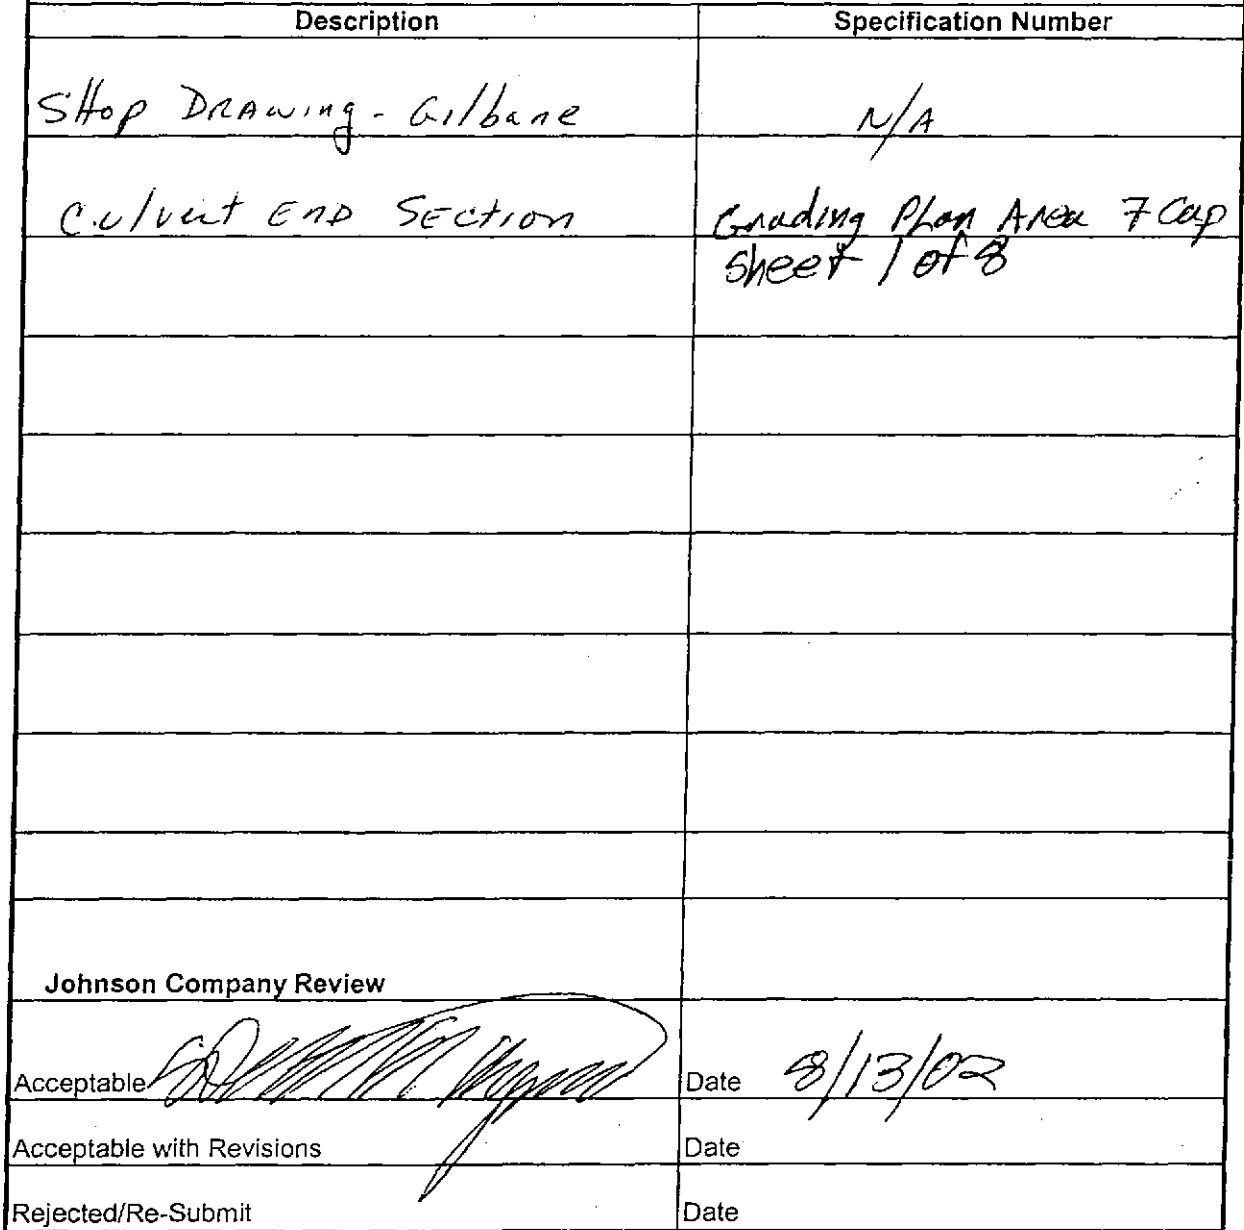 Description Specification Number
SHop DRAwing - Gilbane N/A
Culvert END SECtion Grading Plan Area 7 Cap
Sheet 1 of 8
Johnson Company Review
Acceptable Date 8/13/02
Acceptable with Revisions Date
Rejected/Re-Submit Date